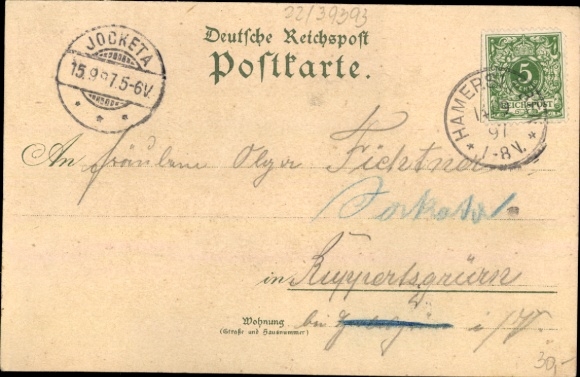 22/39393
Deutsche Reichspost
Postkarte.
JOCKETA
15.9.97.5-6V.
5
REICHSPOST
HAMERS
97
7-8V.
An Fräulein Olga Fichtner
Jocketa
in Ruppertsgrün
Wohnung
(Straße und Hausnummer)
bei i/V.
30,-